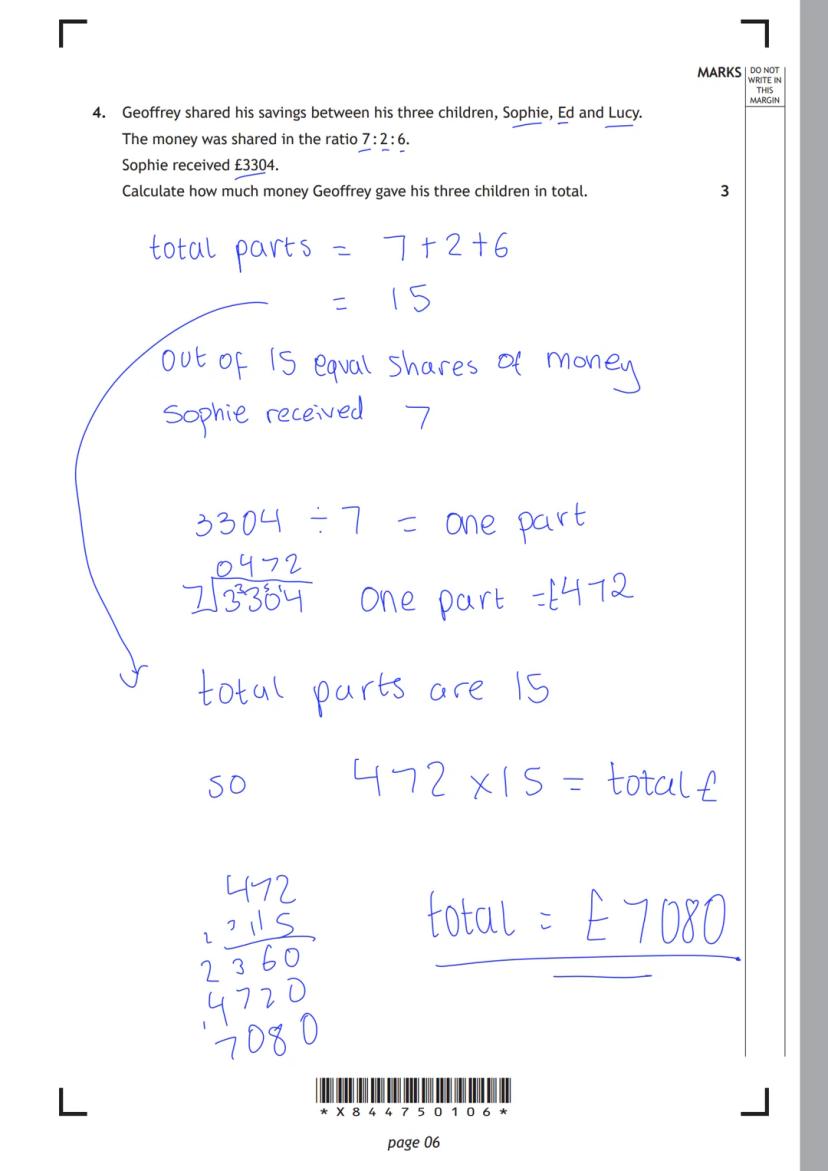 MARKS
DO NOT
WRITE IN
THIS
MARGIN
4. Geoffrey shared his savings between his three children, Sophie, Ed and Lucy.
The money was shared in the ratio 7:2:6.
Sophie received £3304.
Calculate how much money Geoffrey gave his three children in total. 3
total parts = 7+2+6
= 15
out of 15 equal shares of money
Sophie received 7
3304 ÷ 7 = one part
0472
7 3304 one part = £472
total parts are 15
so 472 x 15 = total £
472
15
2360
4720
7080
total = £7080
*X844750106*
page 06